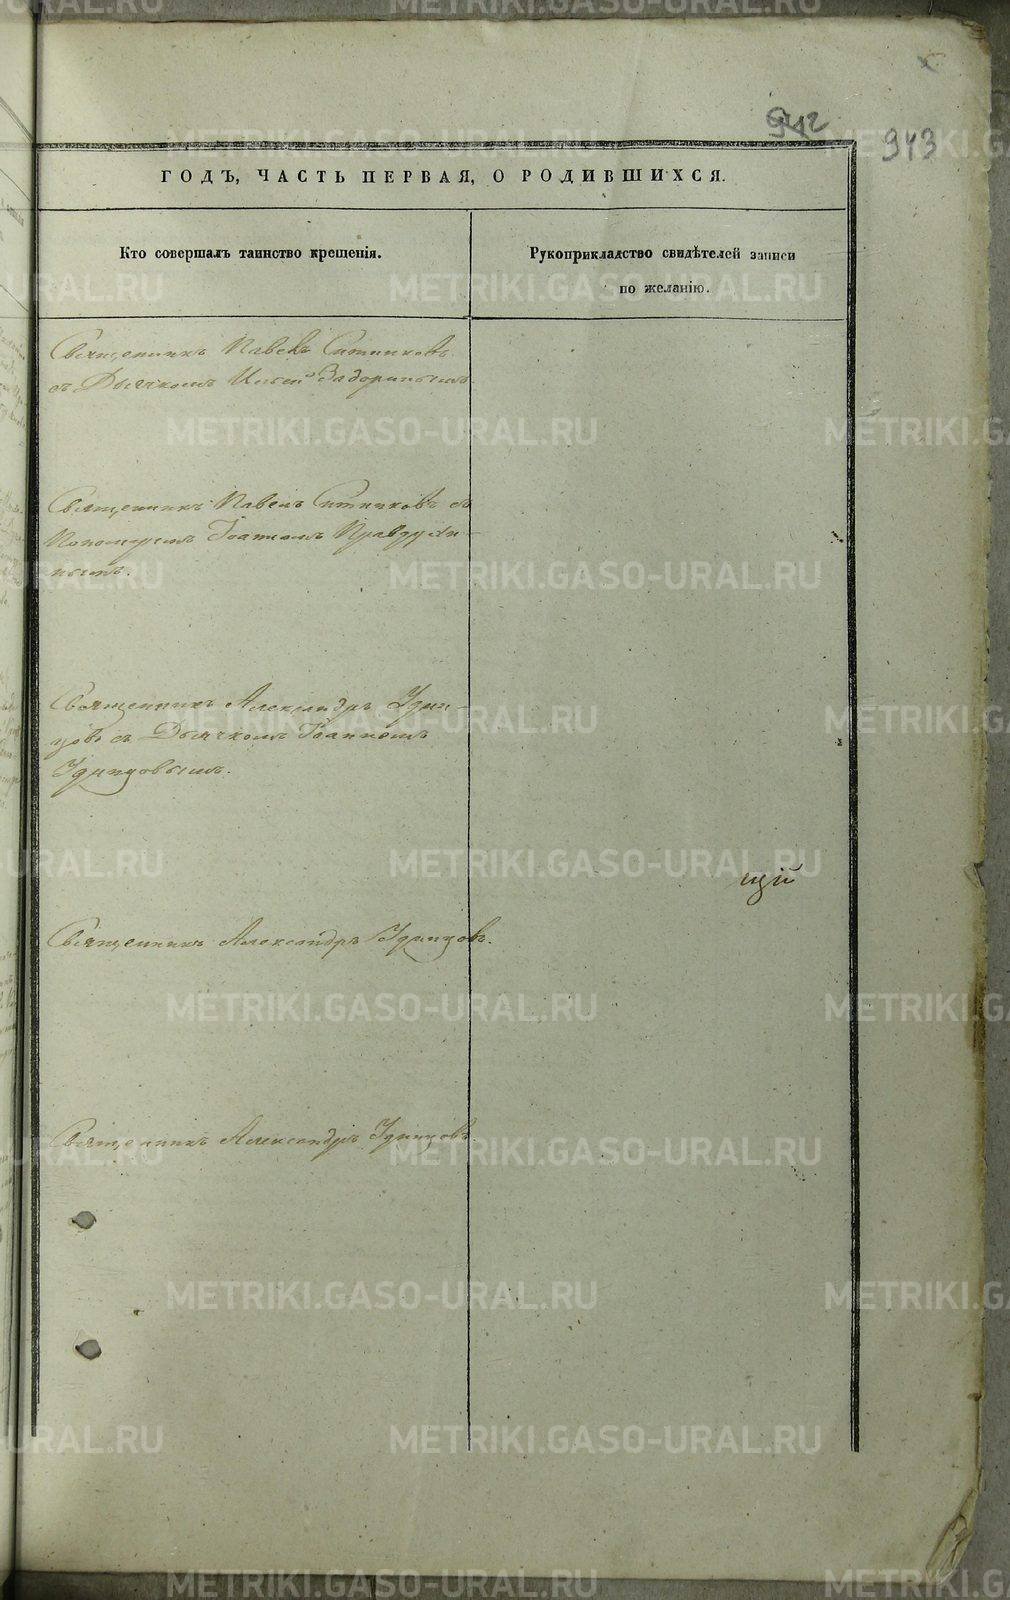 942
943
ГОДЪ, ЧАСТЬ ПЕРВАЯ, О РОДИВШИХСЯ.
Кто совершалъ таинство крещенія.
Рукоприкладство свидѣтелей записи
по желанію.
Священникъ Павелъ Ситниковъ
съ Дьячкомъ Ильей Задоринымъ
Священникъ Павелъ Ситниковъ съ
Пономаремъ Іоанномъ Правдухи-
нымъ.
Священникъ Александръ Удин-
цовъ съ Дьячкомъ Іоанномъ
Удинцовымъ.
щій
Священникъ Александръ Удинцовъ.
Священникъ Александръ Удинцовъ.
METRIKI.GASO-URAL.RU